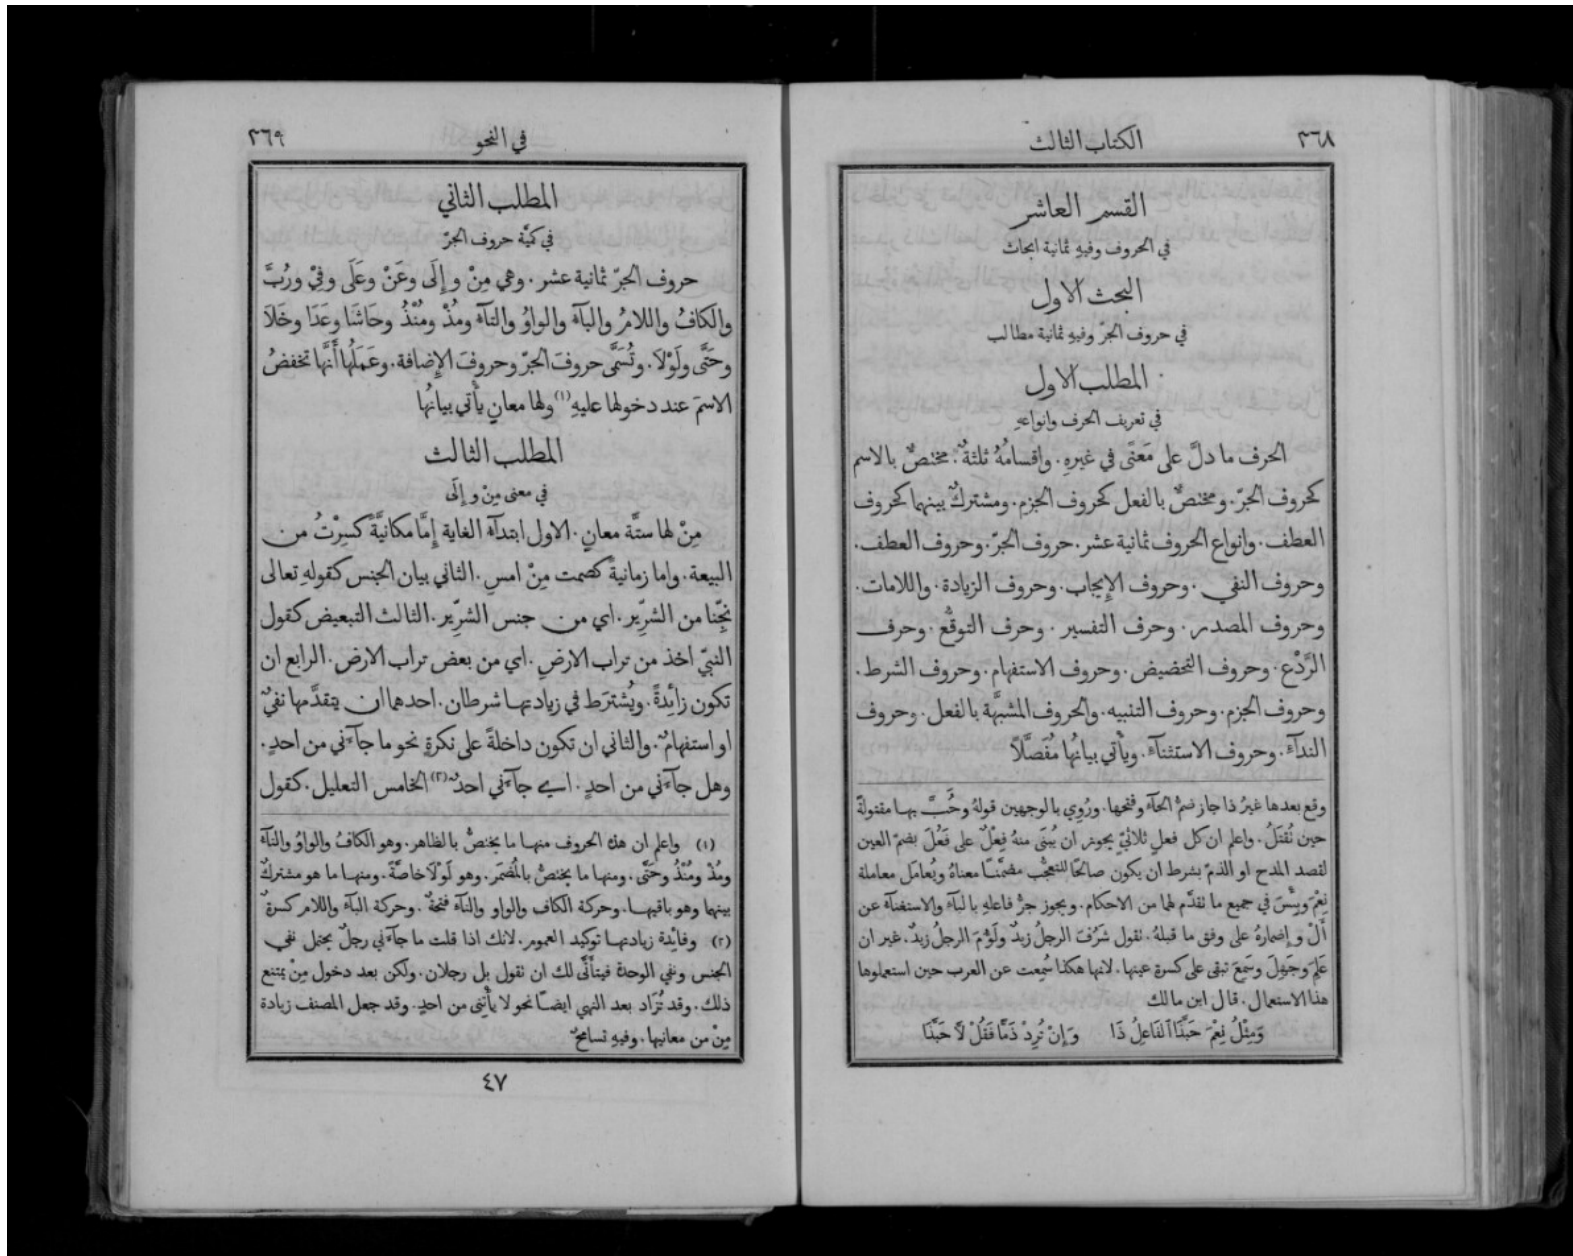 ٣٦٨
الكتاب الثالث
القسم العاشر
في الحروف وفيهِ ثمانية ابحاث
البحث الاول
في حروف الجرّ وفيهِ ثمانية مطالب
المطلب الاول
في تعريف الحرف وانواعهِ
الحرف ما دلَّ على مَعنًى في غيرهِ. واقسامُهُ ثلثةٌ: مختصٌّ بالاسم
كحروف الجرّ. ومختصٌّ بالفعل كحروف الجزم. ومشتركٌ بينهما كحروف
العطف. وانواع الحروف ثمانية عشر. حروف الجرّ. وحروف العطف.
وحروف النفي. وحروف الإيجاب. وحروف الزيادة. واللامات.
وحروف المصدر. وحرف التفسير. وحرف التوقُّع. وحرف
الرَّدْع. وحروف التحضيض. وحروف الاستفهام. وحروف الشرط.
وحروف الجزم. وحروف التنبيه. والحروف المشبهَّة بالفعل. وحروف
الندآء. وحروف الاستثنآء. ويأتي بيانُها مُفَصَّلاً
وقع بعدها غيرُ ذا جاز ضمُّ الحآء وفتحها. ورُوِي بالوجهين قولهُ وحُبَّ بهـا مقتولةً
حين تُقتَلُ. واعلم ان كل فعلٍ ثلاثيٍّ يجوز ان يُبنَى منهُ فِعْلٌ على فَعُلَ بضمّ العين
لقصد المدح او الذمّ بشرط ان يكون صالحًا للتعجُّب مضمَّنًـا معناهُ ويُعامَل معاملة
نِعْمَ وبِئْسَ في جميع ما تقدَّم لهما من الاحكام. ويجوز جرُّ فاعلهِ بالبآء والاستغنآء عن
أَلْ وإضمارهُ على وفق ما قبلهُ. تقول شَرُفَ الرجلُ زيدٌ ولَؤُمَ الرجلُ زيدٌ. غير ان
عَلِمَ وجَهِلَ وسَمِعَ تبقى على كسرة عينها. لانها هكذا سُمِعت عن العرب حين استعملوها
هذا الاستعمال. قال ابن مالك
وَمِثْلُ نِعْمَ حَبَّذَا ٱلفَاعِلُ ذَا وَإِنْ تُرِدْ ذَمًّا فَقُلْ لاَ حَبَّذَا
٣٦٩
في النحو
المطلب الثاني
في كميَّة حروف الجرّ
حروف الجرّ ثمانية عشر. وهي مِنْ وإِلَى وعَنْ وعَلَى وفِيْ ورُبَّ
والكافُ واللامُ والبآءُ والواوُ والتآءُ ومُذْ ومُنْذُ وحَاشَا وعَدَا وخَلاَ
وحَتَّى ولَوْلاَ. وتُسَمَّى حروفَ الجرّ وحروفَ الإضافة. وعَمَلُها أَنَّها تخفضُ
الاسمَ عند دخولها عليهِ(١) ولها معانٍ يأتي بيانُها
المطلب الثالث
في معنى مِنْ وإِلَى
مِنْ لها ستَّة معانٍ. الاول ابتدآءُ الغاية إمَّا مكانيَّةً كسِرْتُ من
البيعة. واما زمانيةً كصمت مِنْ امسِ. الثاني بيان الجنس كقولهِ تعالى
نجِّنا من الشرِّير. اي من جنس الشرِّير. الثالث التبعيض كقول
النبيّ اخذ من تراب الارضِ. اي من بعض تراب الارض. الرابع ان
تكون زائِدةً. ويُشترَط في زيادتهـا شرطان. احدهما ان يتقدَّمها نفيٌ
او استفهامٌ. والثاني ان تكون داخلةً على نكرةٍ نحو ما جآءَني من احدٍ.
وهل جآءَني من احدٍ. اي جآءَني احدٌ(٢) الخامس التعليل. كقول
(١) واعلم ان هذه الحروف منهـا ما يختصُّ بالظاهر. وهو الكافُ والواوُ والتآءُ
ومُذْ ومُنْذُ وحَتَّى. ومنهـا ما يختصُّ بالمُضمَر. وهو لَوْلاَ خاصَّةً. ومنهـا ما هو مشتركٌ
بينهما وهو باقيهـا. وحركة الكاف والواو والتآء فتحةٌ. وحركة البآء واللام كسرةٌ
(٢) وفائِدة زيادتهـا توكيد العموم. لانك اذا قلت ما جآءَني رجلٌ يحتمل نفي
الجنس ونفي الوحدة فيتأَتَّى لك ان تقول بل رجلان. ولكن بعد دخول مِنْ يمتنع
ذلك. وقد تُزَاد بعد النهي ايضـًا نحو لا يأْتِني من احدٍ. وقد جعل المصنف زيادة
مِنْ من معانيها. وفيهِ تسامحٌ
٤٧